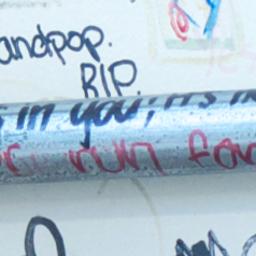 andpop.
RIP.
in you, it's
run for